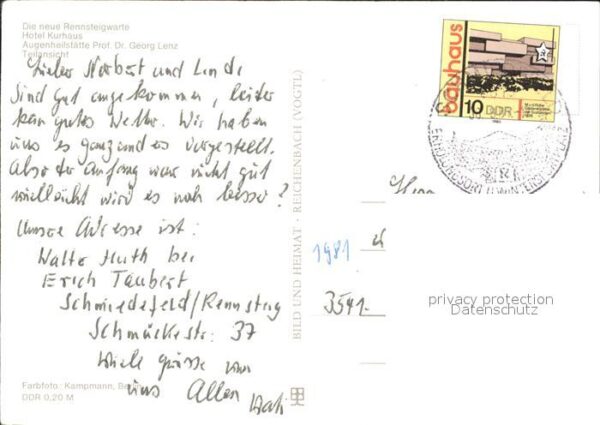 Die neue Rennsteigwarte
Hotel Kurhaus
Augenheilstätte Prof. Dr. Georg Lenz
Teilansicht
Lieber Norbert und Lindi
Sind gut angekommen, leider
kein gutes Wetter. Wir haben
uns es ganz anders vorgestellt.
Also der Anfang war nicht gut
vielleicht wird es noch besser?
Unsre Adresse ist:
Walter Huth bei
Erich Taubert
Schmiedefeld/Rennsteig
Schmückestr. 37
Viele grüsse von
uns Allen
Farbfoto: Kampmann, Berlin
DDR 0,20 M
BILD UND HEIMAT · REICHENBACH (VOGTL)
bauhaus
10 DDR
1980
ERHOLUNGSORT U WINTERSPORTPLATZ
Herr
1981
3541.
privacy protection
Datenschutz